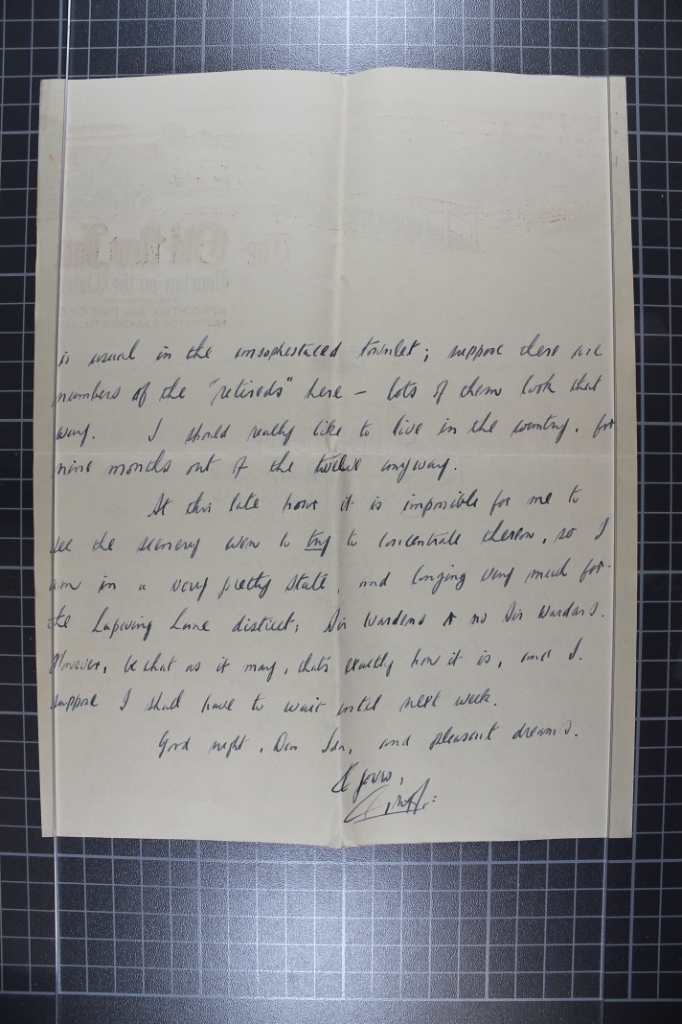 The Old New Inn
Bourton on the Water
is usual in the unsophestaced townlet; suppose there are
numbers of the "retireds" here – lots of them look that
way. I should really like to live in the country, for
nine months out of the twelve anyway.
At this late hour it is impossible for me to
see the scenery even to try to concentrate thereon, so I
am in a very pretty state, and longing very much for
the Lapwing Lane district; Air Wardens or no Air Wardens.
However, be that as it may, that's exactly how it is, and I
suppose I shall have to wait until next week.
Good night, Dear and pleasant dreams.
yours,